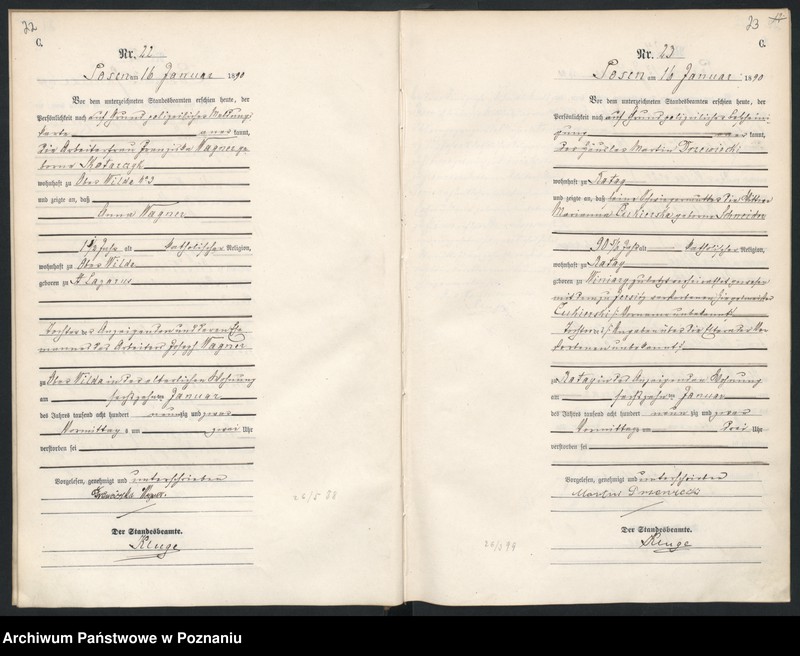 22
C.
Nr. 22
Posen am 16 Januar 1890
Vor dem unterzeichneten Standesbeamten erschien heute, der
Persönlichkeit nach auf Grund polizeilicher Meldungs
karte aner kannt,
die Arbeiterfrau Franziska Wagner ge
borene
wohnhaft zu Ober Wilda
und zeigte an, daß
Anna Wagner
1 1/2 Jahr alt katholischer Religion,
wohnhaft zu Ober Wilda
geboren zu St Lazarus
Tochter der Anzeigenden und deren Ehe
mannes des Arbeiters Joseph Wagner
zu Ober Wilda in der elterlichen Wohnung
am sechszehnten Januar
des Jahres tausend acht hundert neunzig und
Vormittags um zwei Uhr
verstorben sei
Vorgelesen, genehmigt und unterschrieben
Franziska Wagner
Der Standesbeamte.
Kluge
23
C.
Nr. 23
Posen am 16 Januar 1890
Vor dem unterzeichneten Standesbeamten erschien heute, der
Persönlichkeit nach auf Grund polizeilicher Bescheini
gung aner kannt,
der Häusler Martin
wohnhaft zu Ratay
und zeigte an, daß seine Schwiegermutter die Wittwe
Marianna geborene Schneider
90 Jahr alt katholischer Religion,
wohnhaft zu Ratay
geboren zu Winiary zuletzt verheirathet gewesen
mit dem zu Jersitz verstorbenen
Vorname unbekannt
Tochter der Angaben über die Eltern der Ver
storbenen unbekannt
zu Ratay in des Anzeigenden Wohnung
am sechszehnten Januar
des Jahres tausend acht hundert neun zig und
Vormittags um drei Uhr
verstorben sei
Vorgelesen, genehmigt und unterschrieben
Martin
Der Standesbeamte.
Kluge
Archiwum Państwowe w Poznaniu